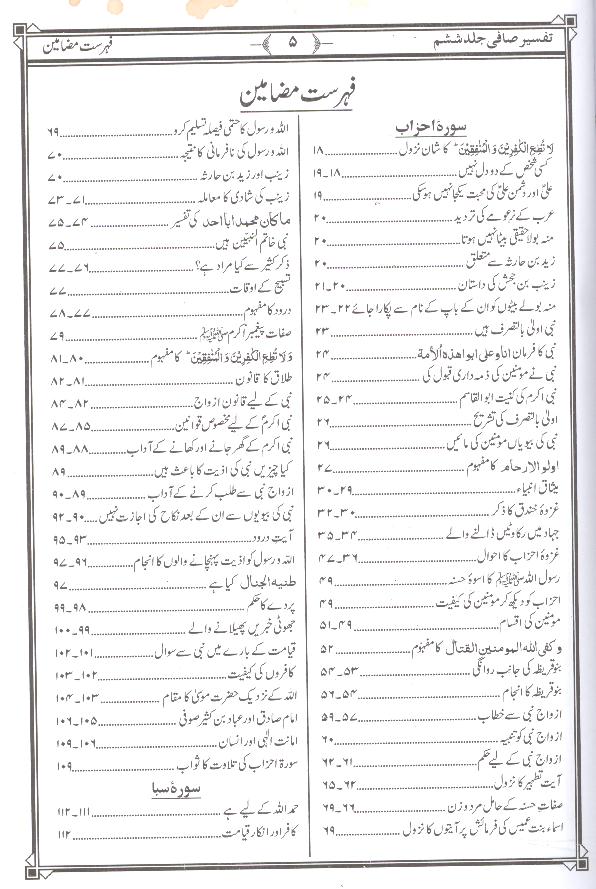 تفسیر صافی جلد ششم
۵
فہرست مضامین
فہرست مضامین
سورۂ احزاب
لَا تُطِعِ الْکٰفِرِیْنَ وَ الْمُنٰفِقِیْنَ کا شان نزول ۱۸
کسی شخص کے دو دل نہیں ۱۸۔۱۹
علیؑ اور دشمن علیؑ کی محبت یکجا نہیں ہوسکی ۱۹
عرب کے زعومے کی تردید ۲۰
منہ بولا حقیقی بیٹا نہیں ہوتا ۲۰
زید بن حارثہ سے متعلق ۲۰
زینب بن جحش کی داستان ۲۰۔۲۱
منہ بولے بیٹوں کو ان کے باپ کے نام سے پکارا جائے ۲۲۔۲۳
نبی اولیٰ بالتصرف ہیں ۲۳
نبی کا فرمان انا و علی ابوا ھذہ الأمة ۲۴
نبی نے مومنین کی ذمہ داری قبول کی ۲۴
نبی اکرم کی کنیت ابوالقاسم ۲۴۔۲۵
اولیٰ بالتصرف کی تشریح ۲۶
نبی کی بیویاں مومنین کی مائیں ۲۶
اولو الارحام کا مفہوم ۲۷
میثاق انبیاء ۲۹۔۳۰
غزوۂ خندق کا ذکر ۳۰۔۳۲
جہاد میں رکاوٹیں ڈالنے والے ۳۴۔۳۵
غزوۂ احزاب کا احوال ۳۶۔۴۷
رسول اللہ ﷺ کا اسوۂ حسنہ ۴۹
احزاب کو دیکھ کر مومنین کی کیفیت ۴۹
مومنین کی اقسام ۴۹۔۵۱
و کفی اللہ المومنین القتال کا مفہوم ۵۲
بنو قریظہ کی جانب روانگی ۵۳۔۵۴
بنو قریظہ کا انجام ۵۴۔۵۶
ازواج نبی سے خطاب ۵۷۔۵۹
ازواج نبی کو تنبیہ ۶۰
ازواج نبی کے لیے حکم ۶۱۔۶۲
آیت تطہیر کا نزول ۶۲۔۶۵
صفات حسنہ کے حامل مرد و زن ۶۶۔۶۹
اسماء بنت عمیس کی فرمائش پر آیتوں کا نزول ۶۹
اللہ و رسول کا حتمی فیصلہ تسلیم کرو ۶۹
اللہ و رسول کی نافرمانی کا نتیجہ ۷۰
زینب اور زید بن حارثہ ۷۰
زینب کی شادی کا معاملہ ۷۱۔۷۳
ماکان محمد ابا احد کی تفسیر ۷۴۔۷۵
نبی خاتم النبیین ہیں ۷۵
ذکر کثیر سے کیا مراد ہے؟ ۷۶۔۷۷
تسبیح کے اوقات ۷۷
درود کا مفہوم ۷۷۔۷۸
صفات پیغمبر اکرم ﷺ ۷۹
وَ لَا تُطِعِ الْکٰفِرِیْنَ وَ الْمُنٰفِقِیْنَ کا مفہوم ۸۰۔۸۱
طلاق کا قانون ۸۱۔۸۲
نبی کے لیے قانون ازواج ۸۲۔۸۴
نبی اکرمؐ کے لیے مخصوص قوانین ۸۵۔۸۷
نبی اکرمؐ کے گھر جانے اور کھانے کے آداب ۸۸۔۸۹
کیا چیزیں نبی کی اذیت کا باعث ہیں ۸۹
ازواج نبی سے طلب کرنے کے آداب ۸۹۔۹۰
نبی کی بیویوں سے ان کے بعد نکاح کی اجازت نہیں ۹۰۔۹۲
آیت درود ۹۳۔۹۵
اللہ و رسول کو اذیت پہنچانے والوں کا انجام ۹۶۔۹۷
طنیه الجنال کیا ہے ۹۷
پردے کا حکم ۹۸۔۹۹
جھوٹی خبریں پھیلانے والے ۹۹۔۱۰۰
قیامت کے بارے میں نبی سے سوال ۱۰۱۔۱۰۲
کافروں کی کیفیت ۱۰۲۔۱۰۳
اللہ کے نزدیک حضرت موسیٰؑ کا مقام ۱۰۳۔۱۰۴
امام صادق اور عباد بن کثیر صوفی ۱۰۵۔۱۰۶
امانت الٰہی اور انسان ۱۰۶۔۱۰۹
سورۃ احزاب کی تلاوت کا ثواب ۱۰۹
سورۂ سبا
حمد اللہ کے لیے ہے ۱۱۱۔۱۱۲
کافر اور انکار قیامت ۱۱۲